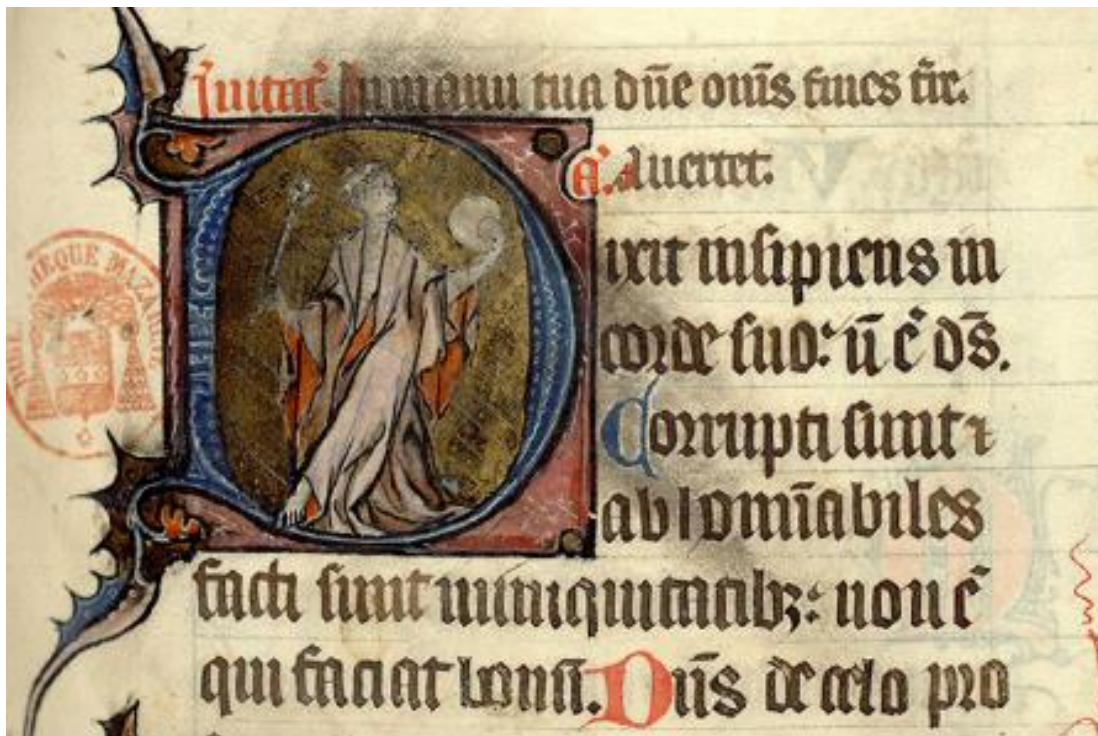 Inuitat. In manu tua dñe om̄s fines tr̄e.
A. Auertet.
Dixit insipiens in
corde suo: n̄ ē ds̄.
Corrupti sunt ⁊
abhominabiles
facti sunt in iniquitatibꝫ: non ē
qui faciat bonū. Dn̄s de celo pro
BIBLIOTHEQUE MAZARINE